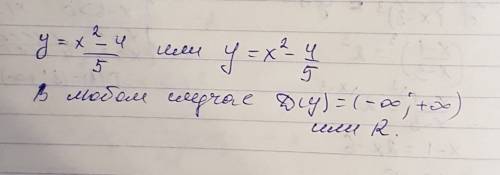 y = x² - 4/5 или y = x² - 4/5
В любом случае D(y) = (-∞; +∞)
или R.